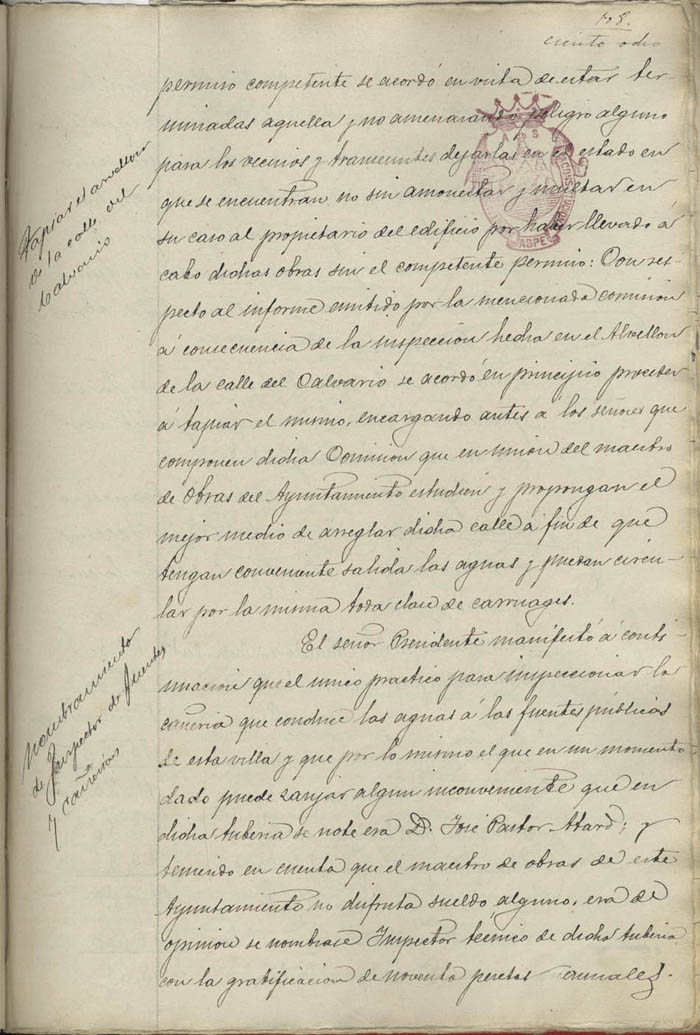 108.
ciento ocho
permiso competente se acordó en vista de estar ter-
minadas aquella y no amenazando peligro alguno
para los vecinos y transeuntes dejarlas en el estado en
que se encuentran no sin amonestar y multar en
su caso al propietario del edificio por haber llevado á
cabo dichas obras sin el competente permiso: Con res-
pecto al informe emitido por la mencionada comision
á consecuencia de la inspeccion hecha en el Alvellon
de la calle del Calvario se acordó en principio proceder
á tapiar el mismo, encargando antes á los señores que
componen dicha Comision que en union del maestro
de obras del Ayuntamiento estudien y propongan el
mejor medio de arreglar dicha calle á fin de que
tengan conveniente salida las aguas y puedan circu-
lar por la misma toda clase de carruages.
El señor Presidente manifestó á conti-
nuacion que el unico practico para inspeccionar la
cañeria que conduce las aguas á las fuentes públicas
de esta villa y que por lo mismo el que en un momento
dado puede zanjar algun inconveniente que en
dicha tuberia se note era D. José Pastor Atard; y
teniendo en cuenta que el maestro de obras de este
Ayuntamiento no disfruta sueldo alguno, era de
opinion se nombrase Inspector técnico de dicha tuberia
con la gratificacion de noventa pesetas anuales.
Tapiar el
de la calle del
Calvario
Nombramiento
de Inspector de fuentes
y cañerias
ASPE